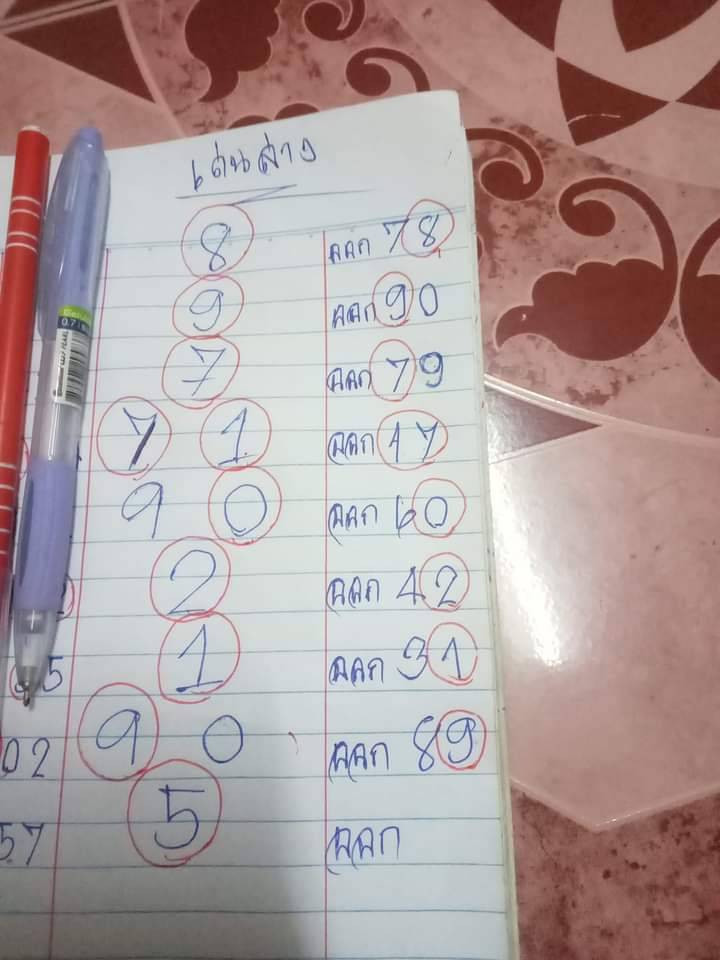 เด่นล่าง
8 ออก 78
9 ออก 90
7 ออก 79
7 1 ออก 17
9 0 ออก 60
2 ออก 42
1 ออก 31
02 9 0 ออก 89
57 5 ออก